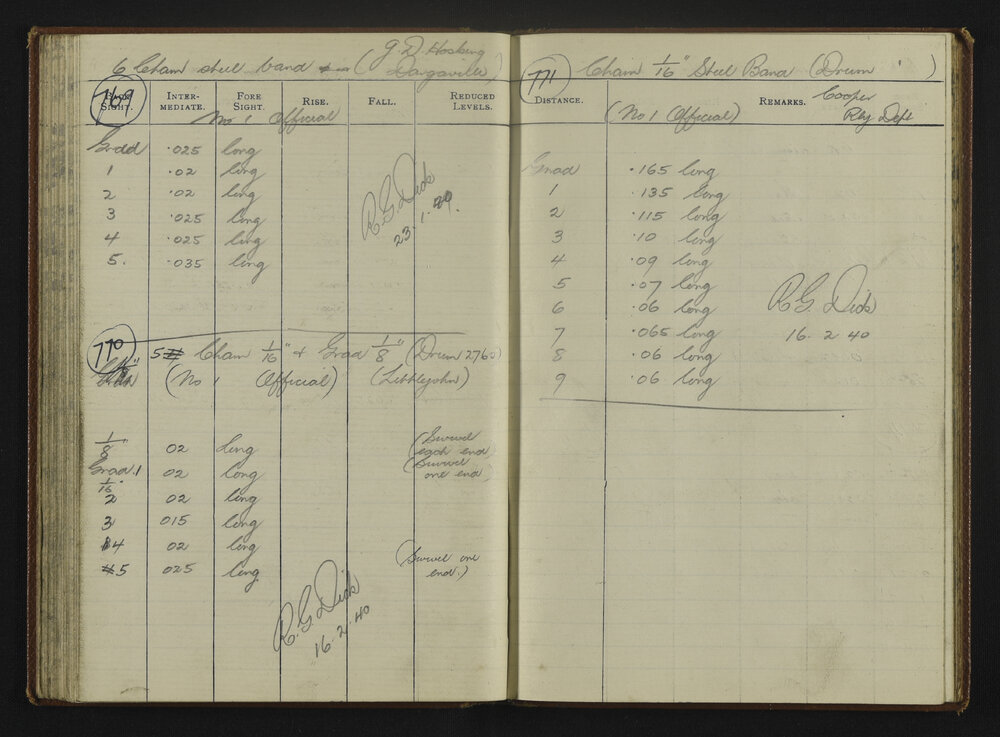 6 Chain steel band (G. D. Hosking
Dargaville)
769
BACK SIGHT. INTER-MEDIATE. FORE SIGHT. RISE. FALL. REDUCED LEVELS.
No 1 Official
Grad .025 long
1 .02 long
2 .02 long
3 .025 long
4 .025 long
5. .035 long
R.G. Dick
23.1.40.
770
5 Chain 1/16" & Grad 1/8" (Drum 2760)
(No 1 Official) (Littlejohn)
1/8" 02 long (Swivel each end)
Grad.1 02 long (Swivel one end)
1/16"
2 02 long
3 015 long
4 02 long (Swivel one end.)
5 025 long
R.G. Dick
16.2.40
771
Chain 1/16" Steel Band (Drum )
DISTANCE. REMARKS.
(No 1 Official) Cooper
Rly Dept
Grad .165 long
1 .135 long
2 .115 long
3 .10 long
4 .09 long
5 .07 long
6 .06 long
7 .065 long
8 .06 long
9 .06 long
R.G. Dick
16.2.40